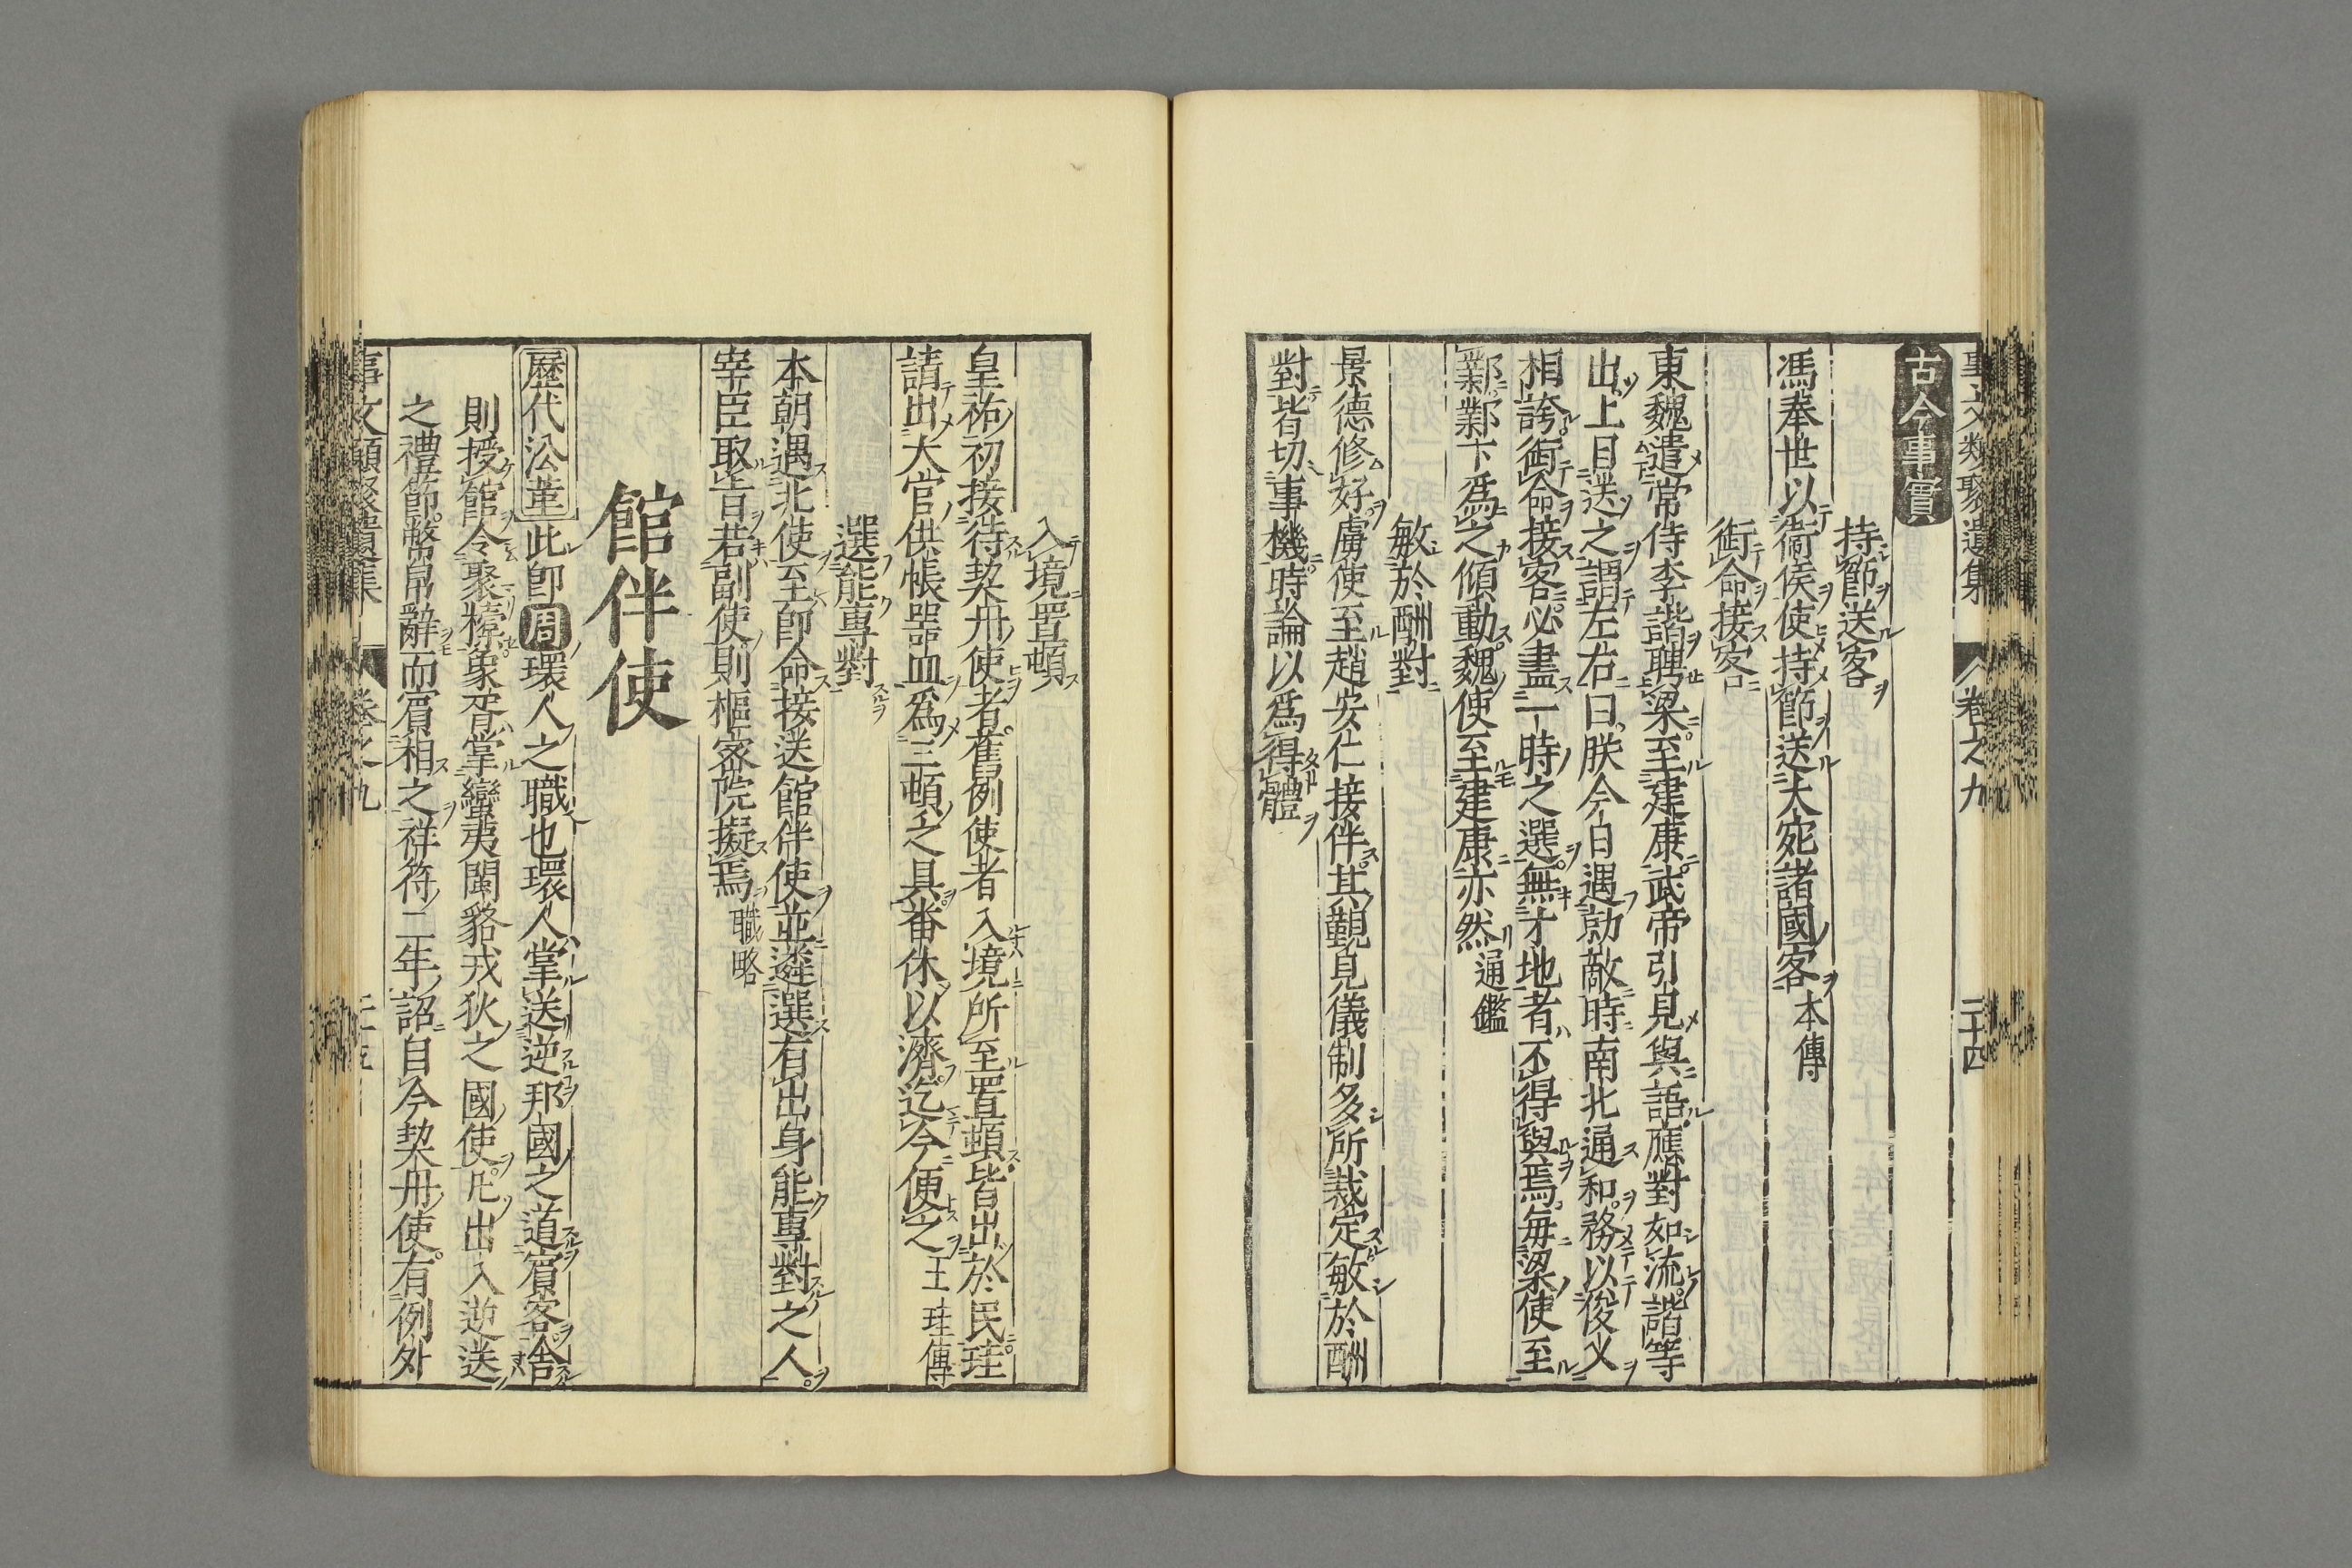 事文類聚遺集 卷之九 二十四
古今事實
持節送客
馮奉世以衞侯使持節送大宛諸國客本傳
銜命接客
東魏遣常侍李諧聘梁至建康武帝引見與語應對如流諧等
出上目送之謂左右曰朕今日遇勍敵時南北通和務以俊乂
相誇銜命接客必盡一時之選無才地者不得與焉毎梁使至
鄴鄴下爲之傾動魏使至建康亦然通鑑
敏於酬對
景德修好虜使至趙安仁接伴其覲見儀制多所裁定敏於酬
對皆切事機時論以爲得體
入境置頓
皇祐初接待契丹使者舊例使者入境所至置頓皆出於民珪
請出大官供帳器皿爲三頓之具番休以濟迄今便之王珪傳
選能專對
本朝遇北使至卽命接送館伴使並遴選有出身能專對之人
宰臣取旨若副使則樞密院擬焉職略
館伴使
歷代㳂革此卽周環人之職也環人掌送逆邦國之道賔客舍
則授館令聚𣝔象胥掌蠻夷閩貉戎狄之國使凡出入逆送
之禮節幣帛辭而賔相之祥符二年詔自今契丹使有例外
事文類聚遺集 卷之九